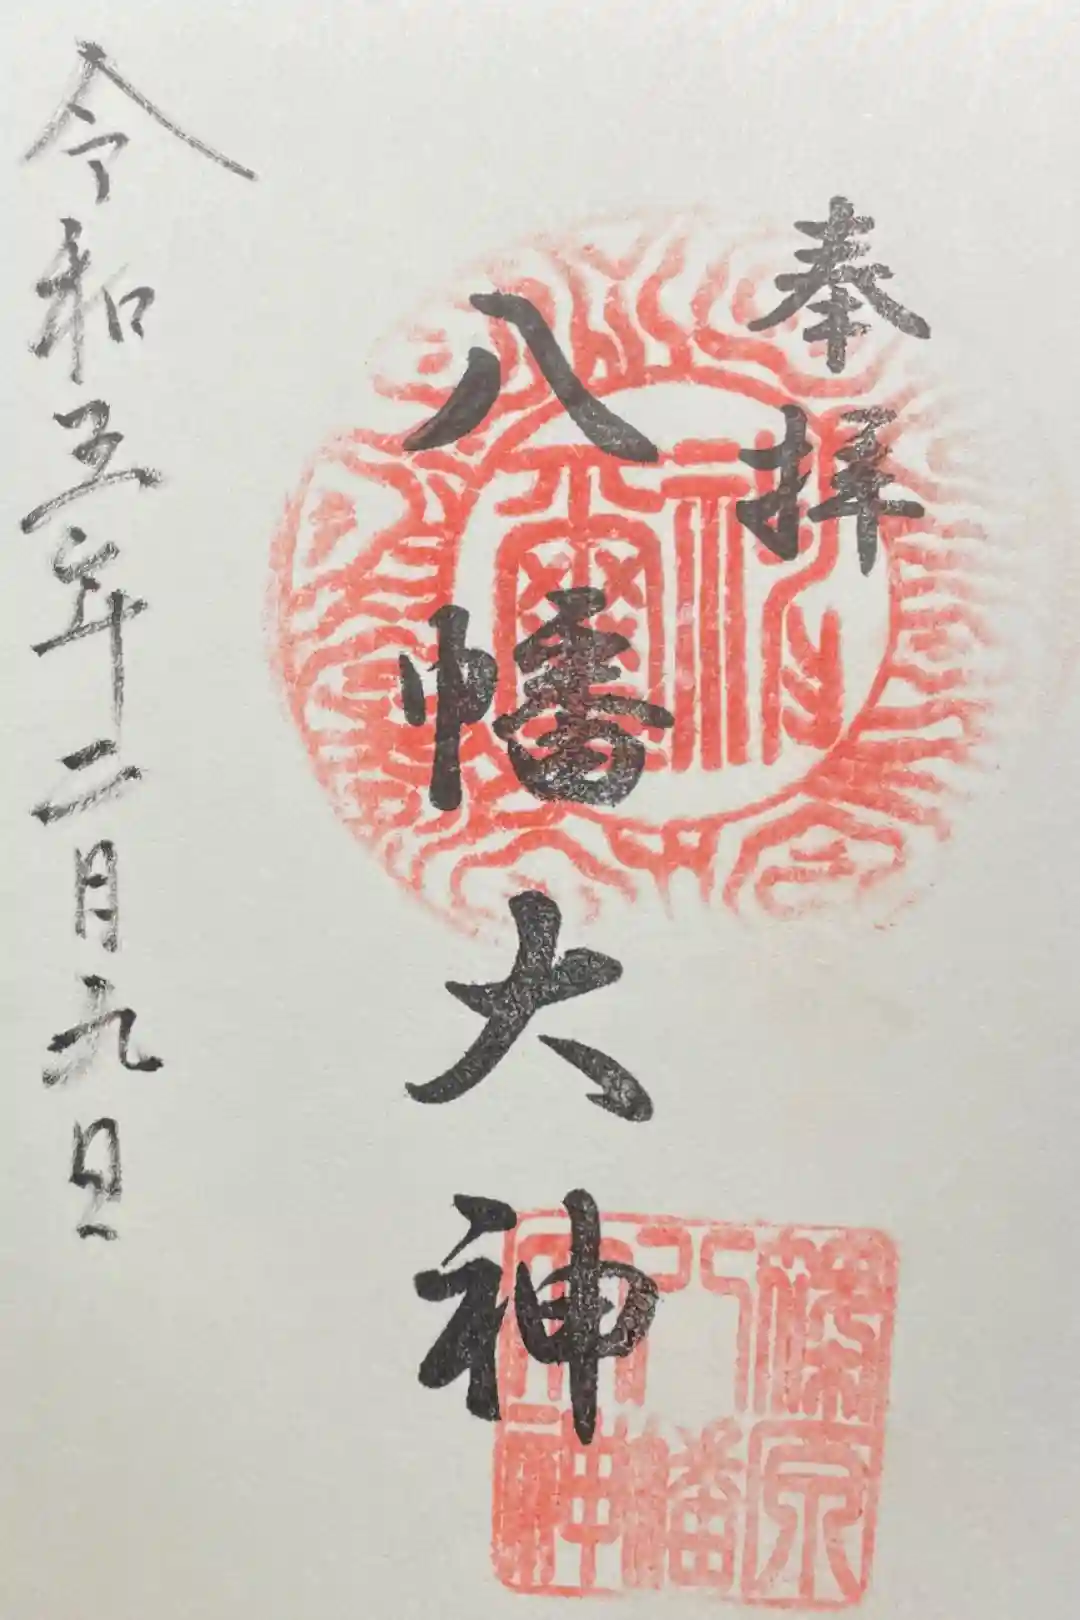 奉拝
八幡大神
令和五年二月九日
八幡
大神